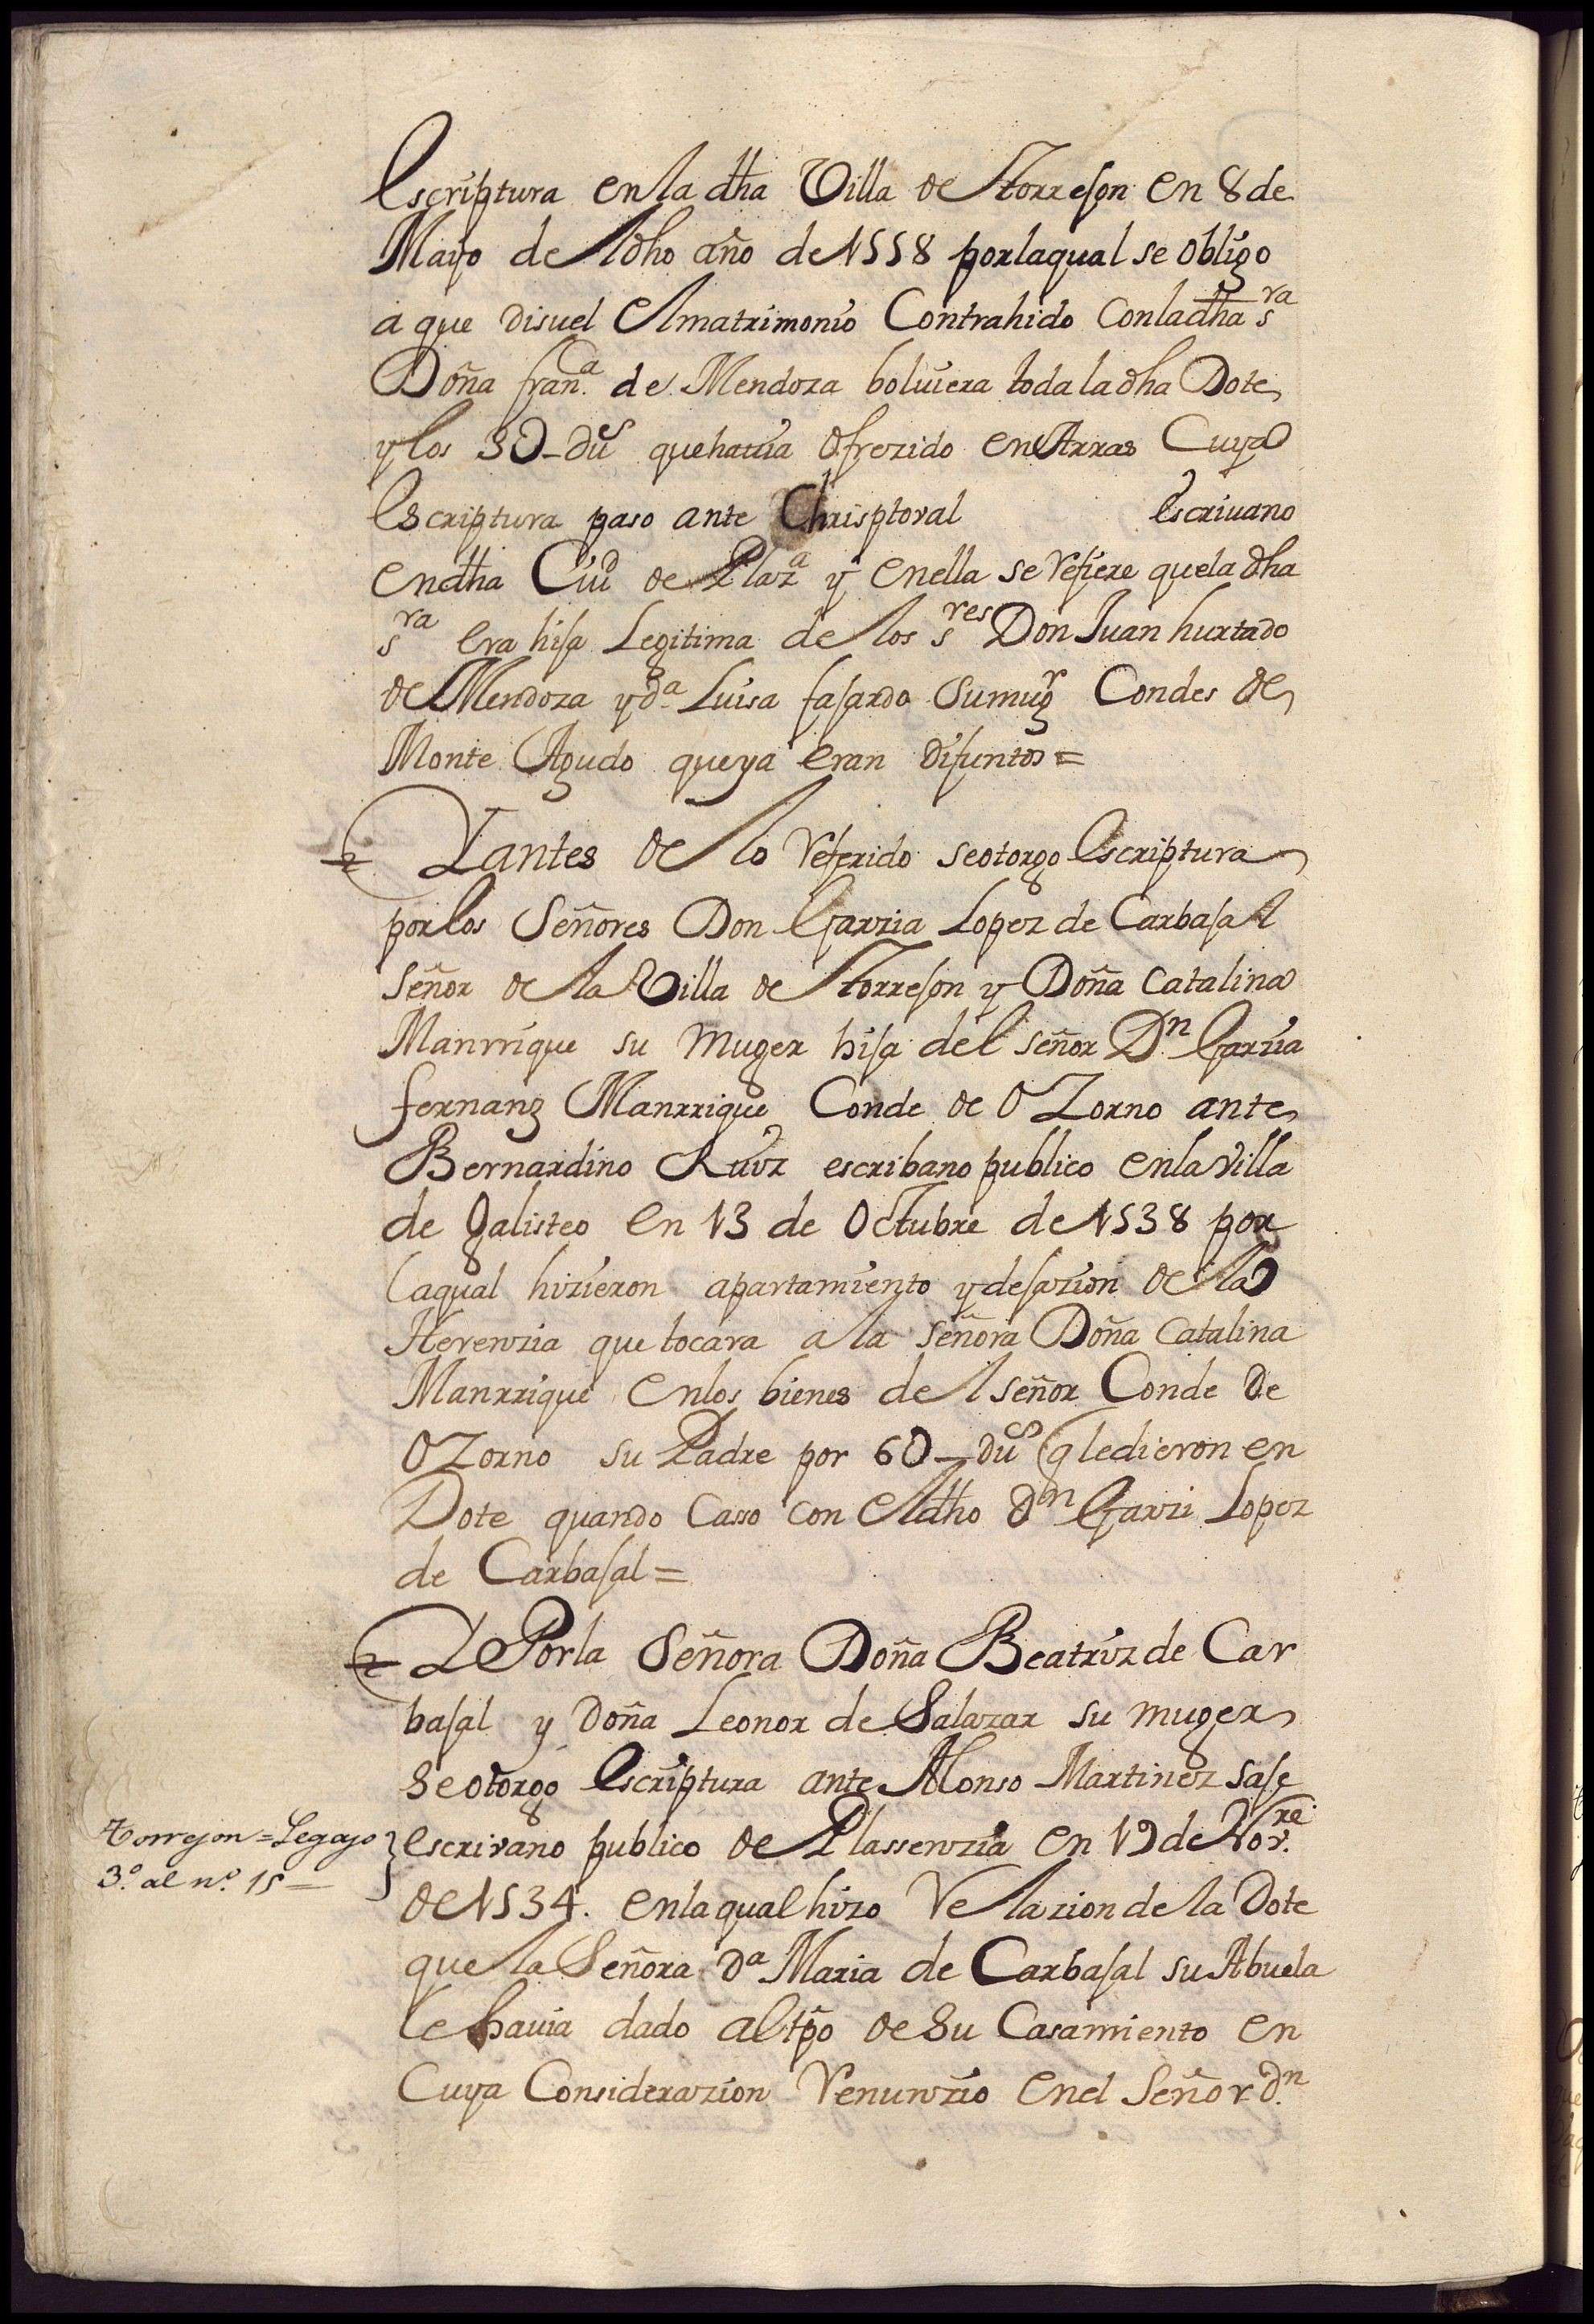 Escriptura en la dha Villa de Torrejon en 8 de
Mayo del dho año de 1558 por la qual se obligo
a que disuel el matrimonio Contrahido con la dha sra
Doña fran.a de Mendoza boluiera toda la dha Dote
y los 3U_dus que hauia ofrezido en Arras Cuya
Escriptura paso ante Chrisptoval escriuano
en dha Ciud de Plaza y en ella se refiere que la dha
sra era hija Legitima de los sres Don Juan hurtado
de Mendoza y d.a Luisa fajardo su mugr Condes de
Monte Agudo que ya eran difuntos =
Y antes de lo referido se otorgo Escriptura
por los Señores Don Garzia Lopez de Carbajal
Señor de la Villa de Torrejon y Doña Catalina
Manrrique su muger hija del señor D.n Garzia
fernanz Manrrique Conde de OZorno ante
Bernardino Ruiz escribano publico en la Villa
de Galisteo en 13 de Octubre de 1538 por
la qual hizieron apartamiento y dejazion de la
Herenzia que tocara a la señora Doña Catalina
Manrrique en los bienes del señor Conde de
OZorno su Padre por 6U_dus q le dieron en
Dote quando Caso con el dho Dn Garzi Lopez
de Carbajal =
Y Por la Señora Doña Beatriz de Car
bajal y Doña Leonor de Salazar su muger
se otorgo Escriptura ante Alonso Martinez saje
Torrejon = Legajo
3.º al n.º 15 =
escrivano publico de Plassenzia en 19 de Nov.re
de 1534. en la qual hizo Relazion de la Dote
que la Señora D.a Maria de Carbajal su Abuela
le hauia dado al tpo de su Casamiento en
Cuya Considerazion Renunzio en el Señor D.n